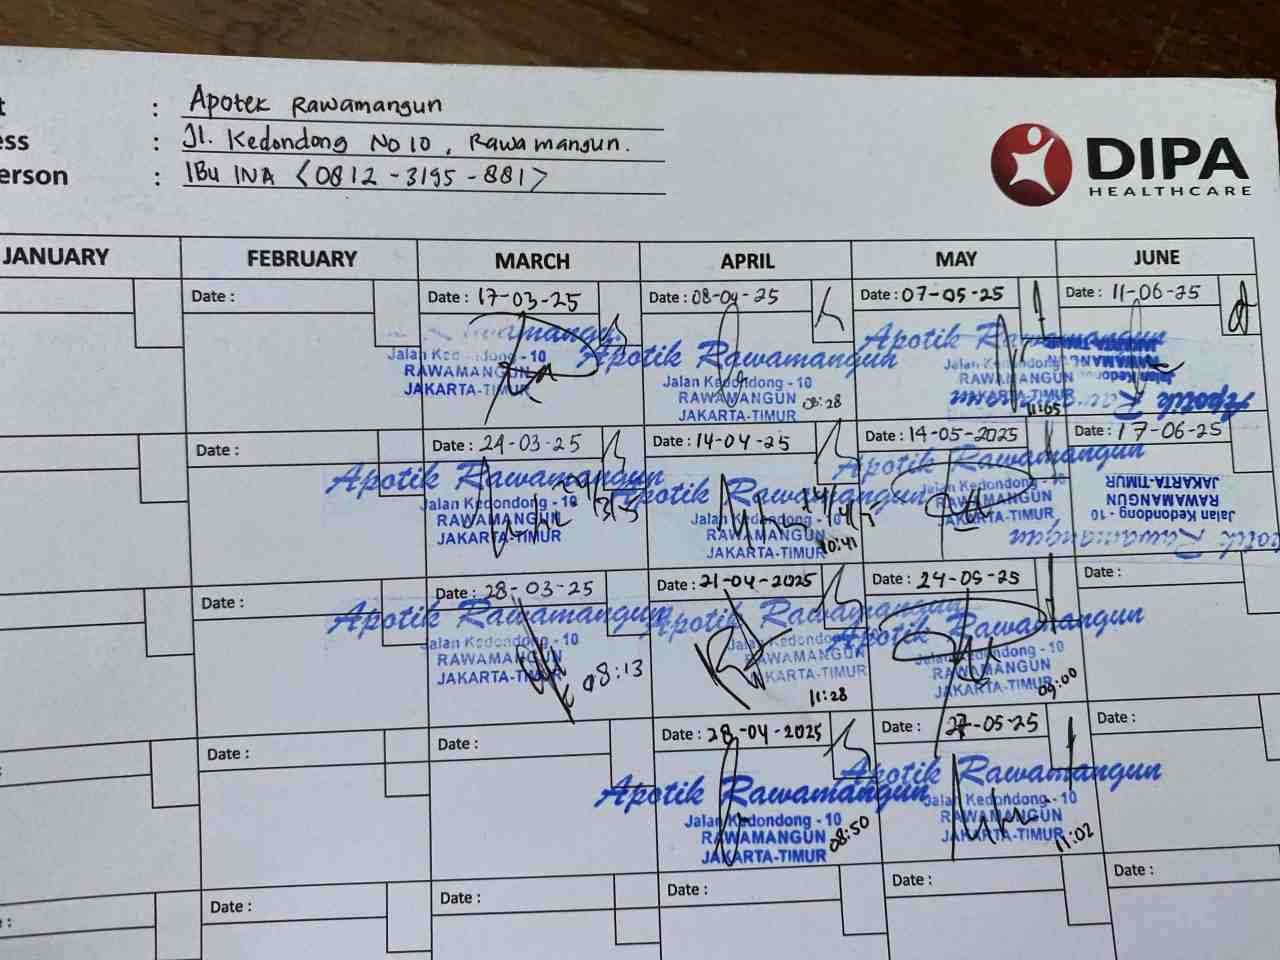 : Apotek Rawamangun
ess : Jl. Kedondong No 10, Rawamangun.
erson : IBu INA <0812-3195-881>
DIPA
HEALTHCARE
JANUARY FEBRUARY MARCH APRIL MAY JUNE
Date : Date : 17-03-25 Date : 08-04-25 Date : 07-05-25 Date : 11-06-25
Apotik Rawamangun
Jalan Kedondong - 10
RAWAMANGUN
JAKARTA-TIMUR
Apotik Rawamangun
Jalan Kedondong - 10
RAWAMANGUN
JAKARTA-TIMUR
08:28
Apotik Rawamangun
Jalan Kedondong - 10
RAWAMANGUN
JAKARTA-TIMUR
11:05
Apotik Rawamangun
Date : Date : 24-03-25 Date : 14-04-25 Date : 14-05-2025 Date : 17-06-25
Apotik Rawamangun
Jalan Kedondong - 10
RAWAMANGUN
JAKARTA-TIMUR
Apotik Rawamangun
Jalan Kedondong - 10
RAWAMANGUN
JAKARTA-TIMUR
10:41
Apotik Rawamangun
Jalan Kedondong - 10
RAWAMANGUN
JAKARTA-TIMUR
Apotik Rawamangun
Jalan Kedondong - 10
RAWAMANGUN
JAKARTA-TIMUR
Date : Date : 28-03-25 Date : 21-04-2025 Date : 24-05-25 Date :
Apotik Rawamangun
Jalan Kedondong - 10
RAWAMANGUN
JAKARTA-TIMUR
08:13
Apotik Rawamangun
Jalan Kedondong - 10
RAWAMANGUN
JAKARTA-TIMUR
11:28
Apotik Rawamangun
Jalan Kedondong - 10
RAWAMANGUN
JAKARTA-TIMUR
09:00
Date : Date : Date : 28-04-2025 Date : 27-05-25 Date :
Apotik Rawamangun
Jalan Kedondong - 10
RAWAMANGUN
JAKARTA-TIMUR
08:50
Apotik Rawamangun
Jalan Kedondong - 10
RAWAMANGUN
JAKARTA-TIMUR
11:02
Date : Date : Date : Date : Date :